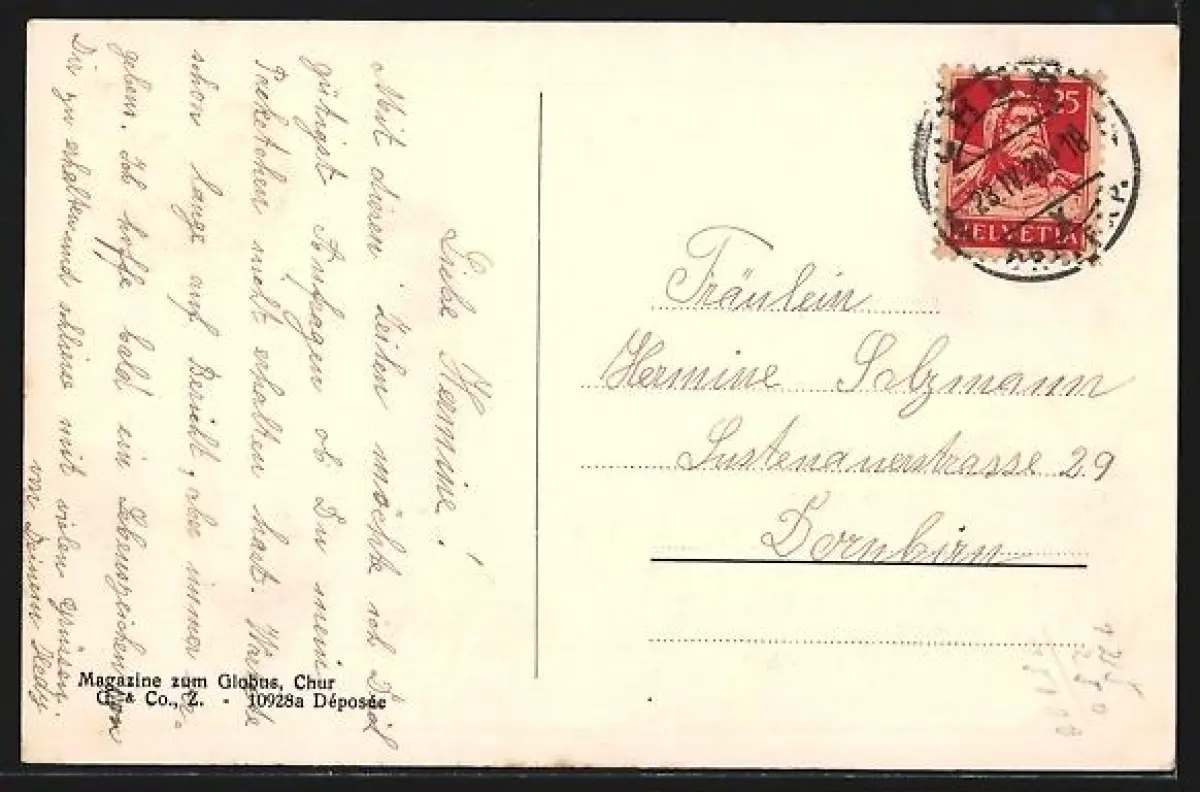 Liebe Hermine!
Mit diesen Zeilen möchte ich Dich
gütigst Anfragen ob Du mein
Packetchen nicht erhalten hast. Warte
schon lange auf Bericht, aber immer
gebens. Ich hoffe bald ein Lebenszeichen von
Dir zu erhalten und schliesse mit vielen Grüssen.
von Deinem Hedy
Magazine zum Globus, Chur
G. & Co., Z. - 10928a Déposée
25
HELVETIA
CHUR
23.IV.20
18
Fräulein
Hermine Salzmann
Lustenauerstrasse 29
Dornbirn